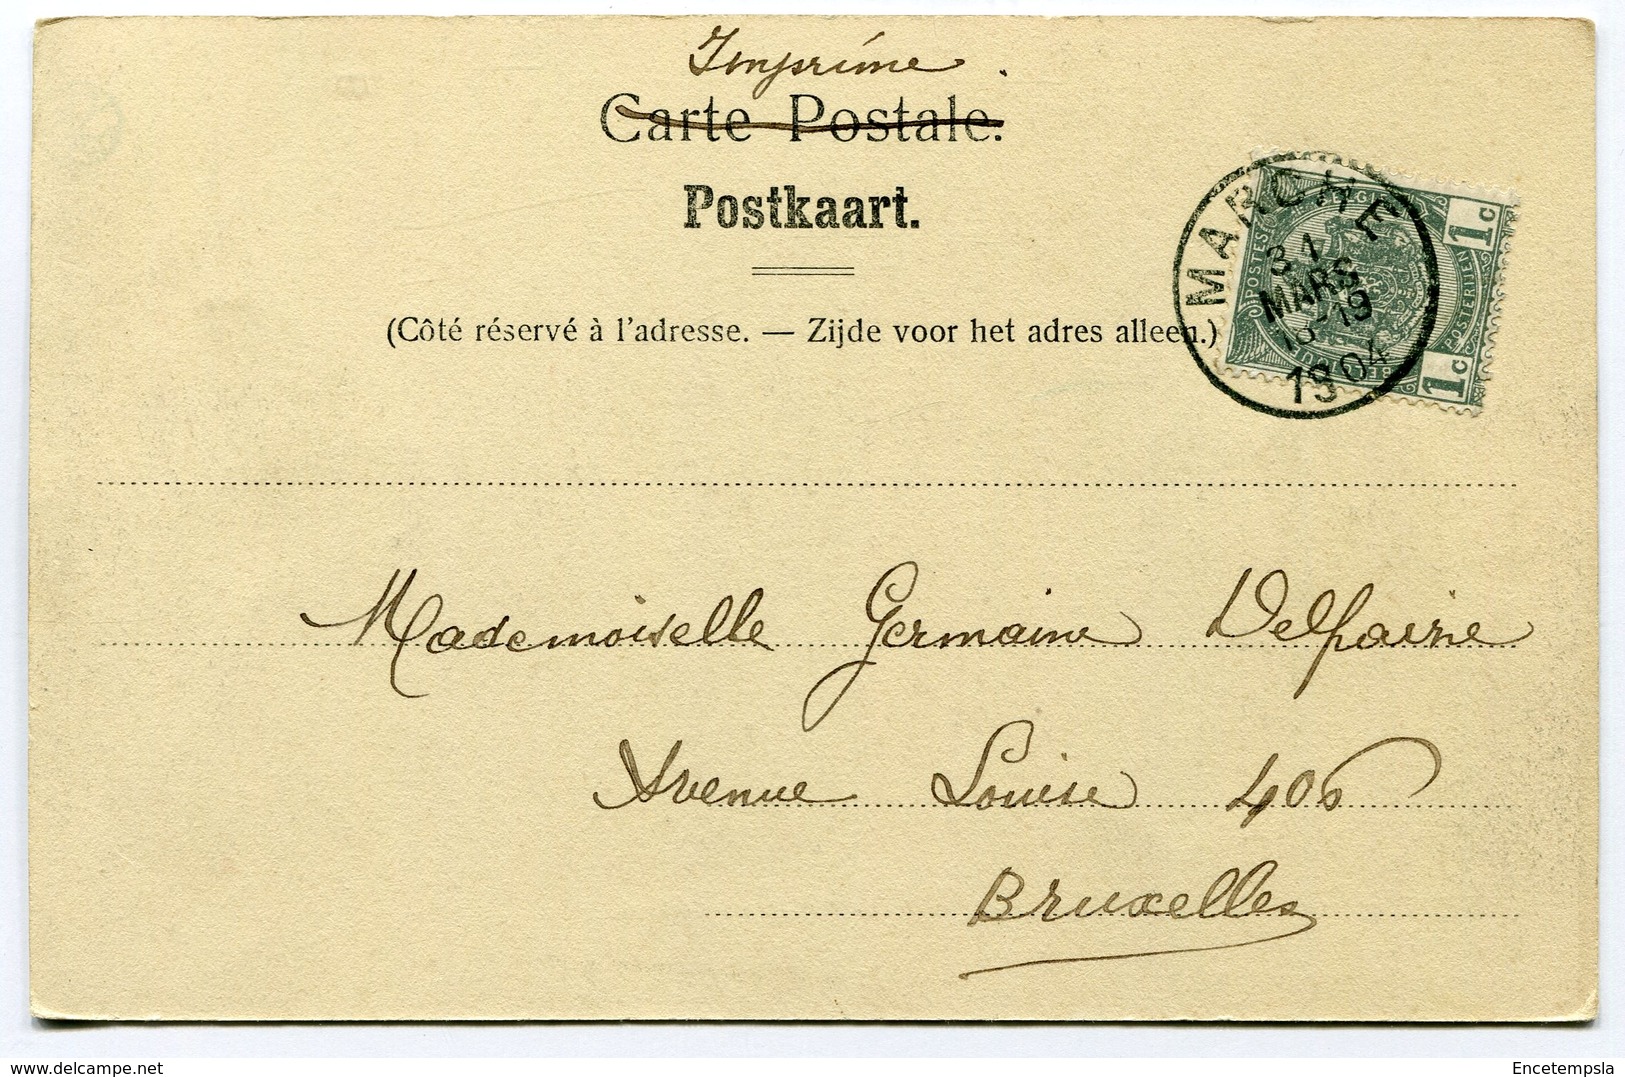 Imprimé.
Carte Postale.
Postkaart.
(Côté réservé à l'adresse. — Zijde voor het adres alleen.)
MARCHE
31
MARS
18-19
1904
POSTES BELGIQUE
POSTERIJEN
1c
1c
Mademoiselle Germaine Delpairie
Avenue Louise 406
Bruxelles
delcampe.net
Encetempsla